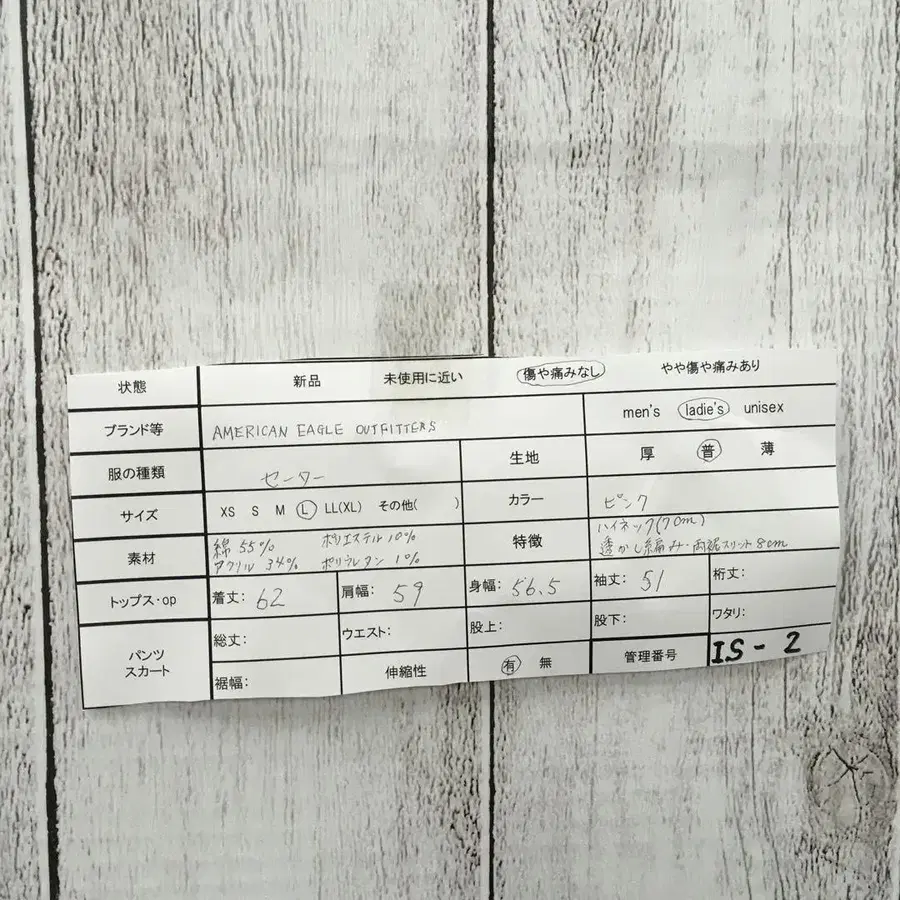 状態 新品 未使用に近い 傷や痛みなし やや傷や痛みあり
ブランド等 AMERICAN EAGLE OUTFITTERS men's ladie's unisex
服の種類 セーター 生地 厚 普 薄
サイズ XS S M L LL(XL) その他( ) カラー ピンク
素材 綿 55% ポリエステル 10% 特徴 ハイネック(7cm)
アクリル 34% ポリウレタン 1% 透かし編み・両裾スリット8cm
トップス・op 着丈: 62 肩幅: 59 身幅: 56.5 袖丈: 51 裄丈:
パンツ
スカート
総丈: ウエスト: 股上: 股下: ワタリ:
裾幅: 伸縮性 有 無 管理番号 IS-2